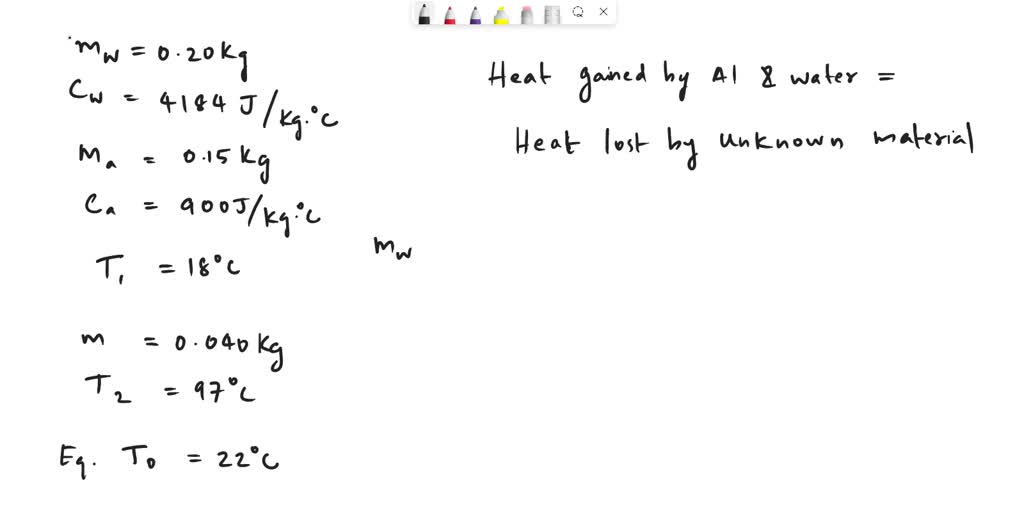 mw = 0.20 kg
Cw = 4184 J/kg.°C
Ma = 0.15 kg
Ca = 900 J/kg.°C
T1 = 18°C
m = 0.040 kg
T2 = 97°C
Eq. T0 = 22°C
Heat gained by Al & water =
Heat lost by unknown material
mw